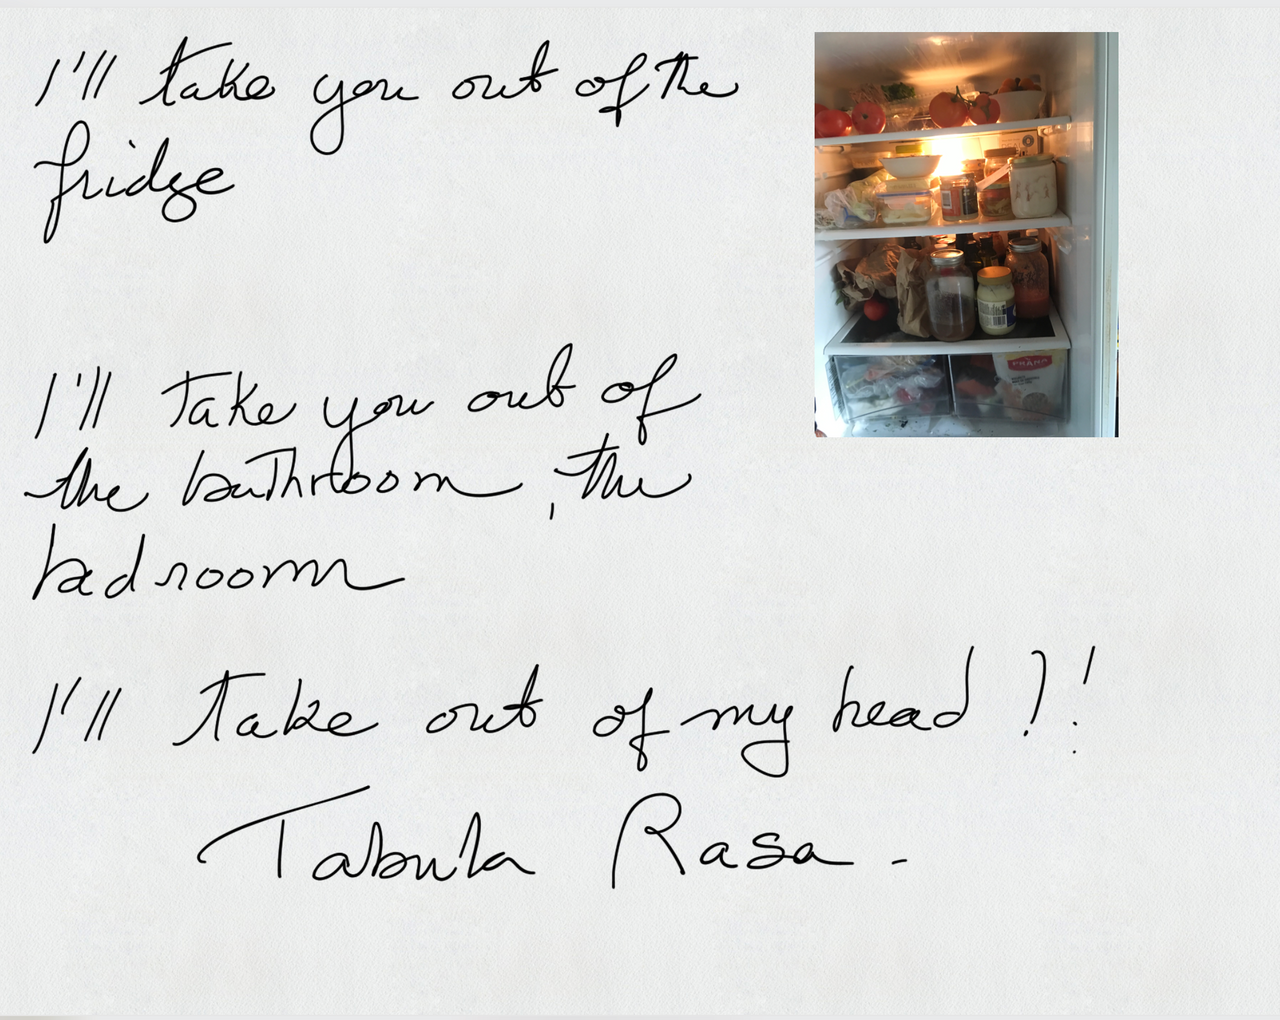 I'll take you out of the
fridge
I'll take you out of
the bathroom, the
bedroom
I'll take out of my head ?!
Tabula Rasa -
PRANA